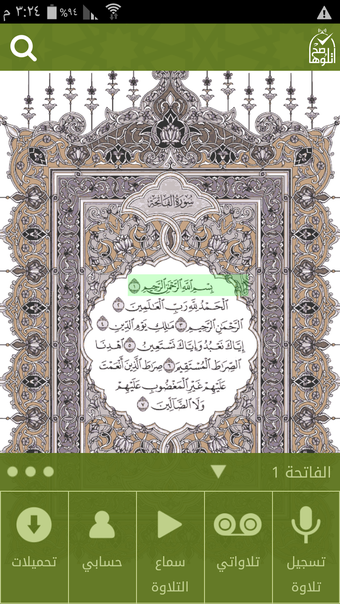 ٣:٢٤ م
%٩٤
اتلوها صح
سُورَةُ الفَاتِحَةِ
بِسْمِ اللَّهِ الرَّحْمَٰنِ الرَّحِيمِ ١
الْحَمْدُ لِلَّهِ رَبِّ الْعَالَمِينَ ٢
الرَّحْمَٰنِ الرَّحِيمِ ٣ مَالِكِ يَوْمِ الدِّينِ ٤
إِيَّاكَ نَعْبُدُ وَإِيَّاكَ نَسْتَعِينُ ٥ اهْدِنَا
الصِّرَاطَ الْمُسْتَقِيمَ ٦ صِرَاطَ الَّذِينَ أَنْعَمْتَ
عَلَيْهِمْ غَيْرِ الْمَغْضُوبِ عَلَيْهِمْ
وَلَا الضَّالِّينَ ٧
الفاتحة 1
تسجيل تلاوة
تلاواتي
سماع التلاوة
حسابي
تحميلات